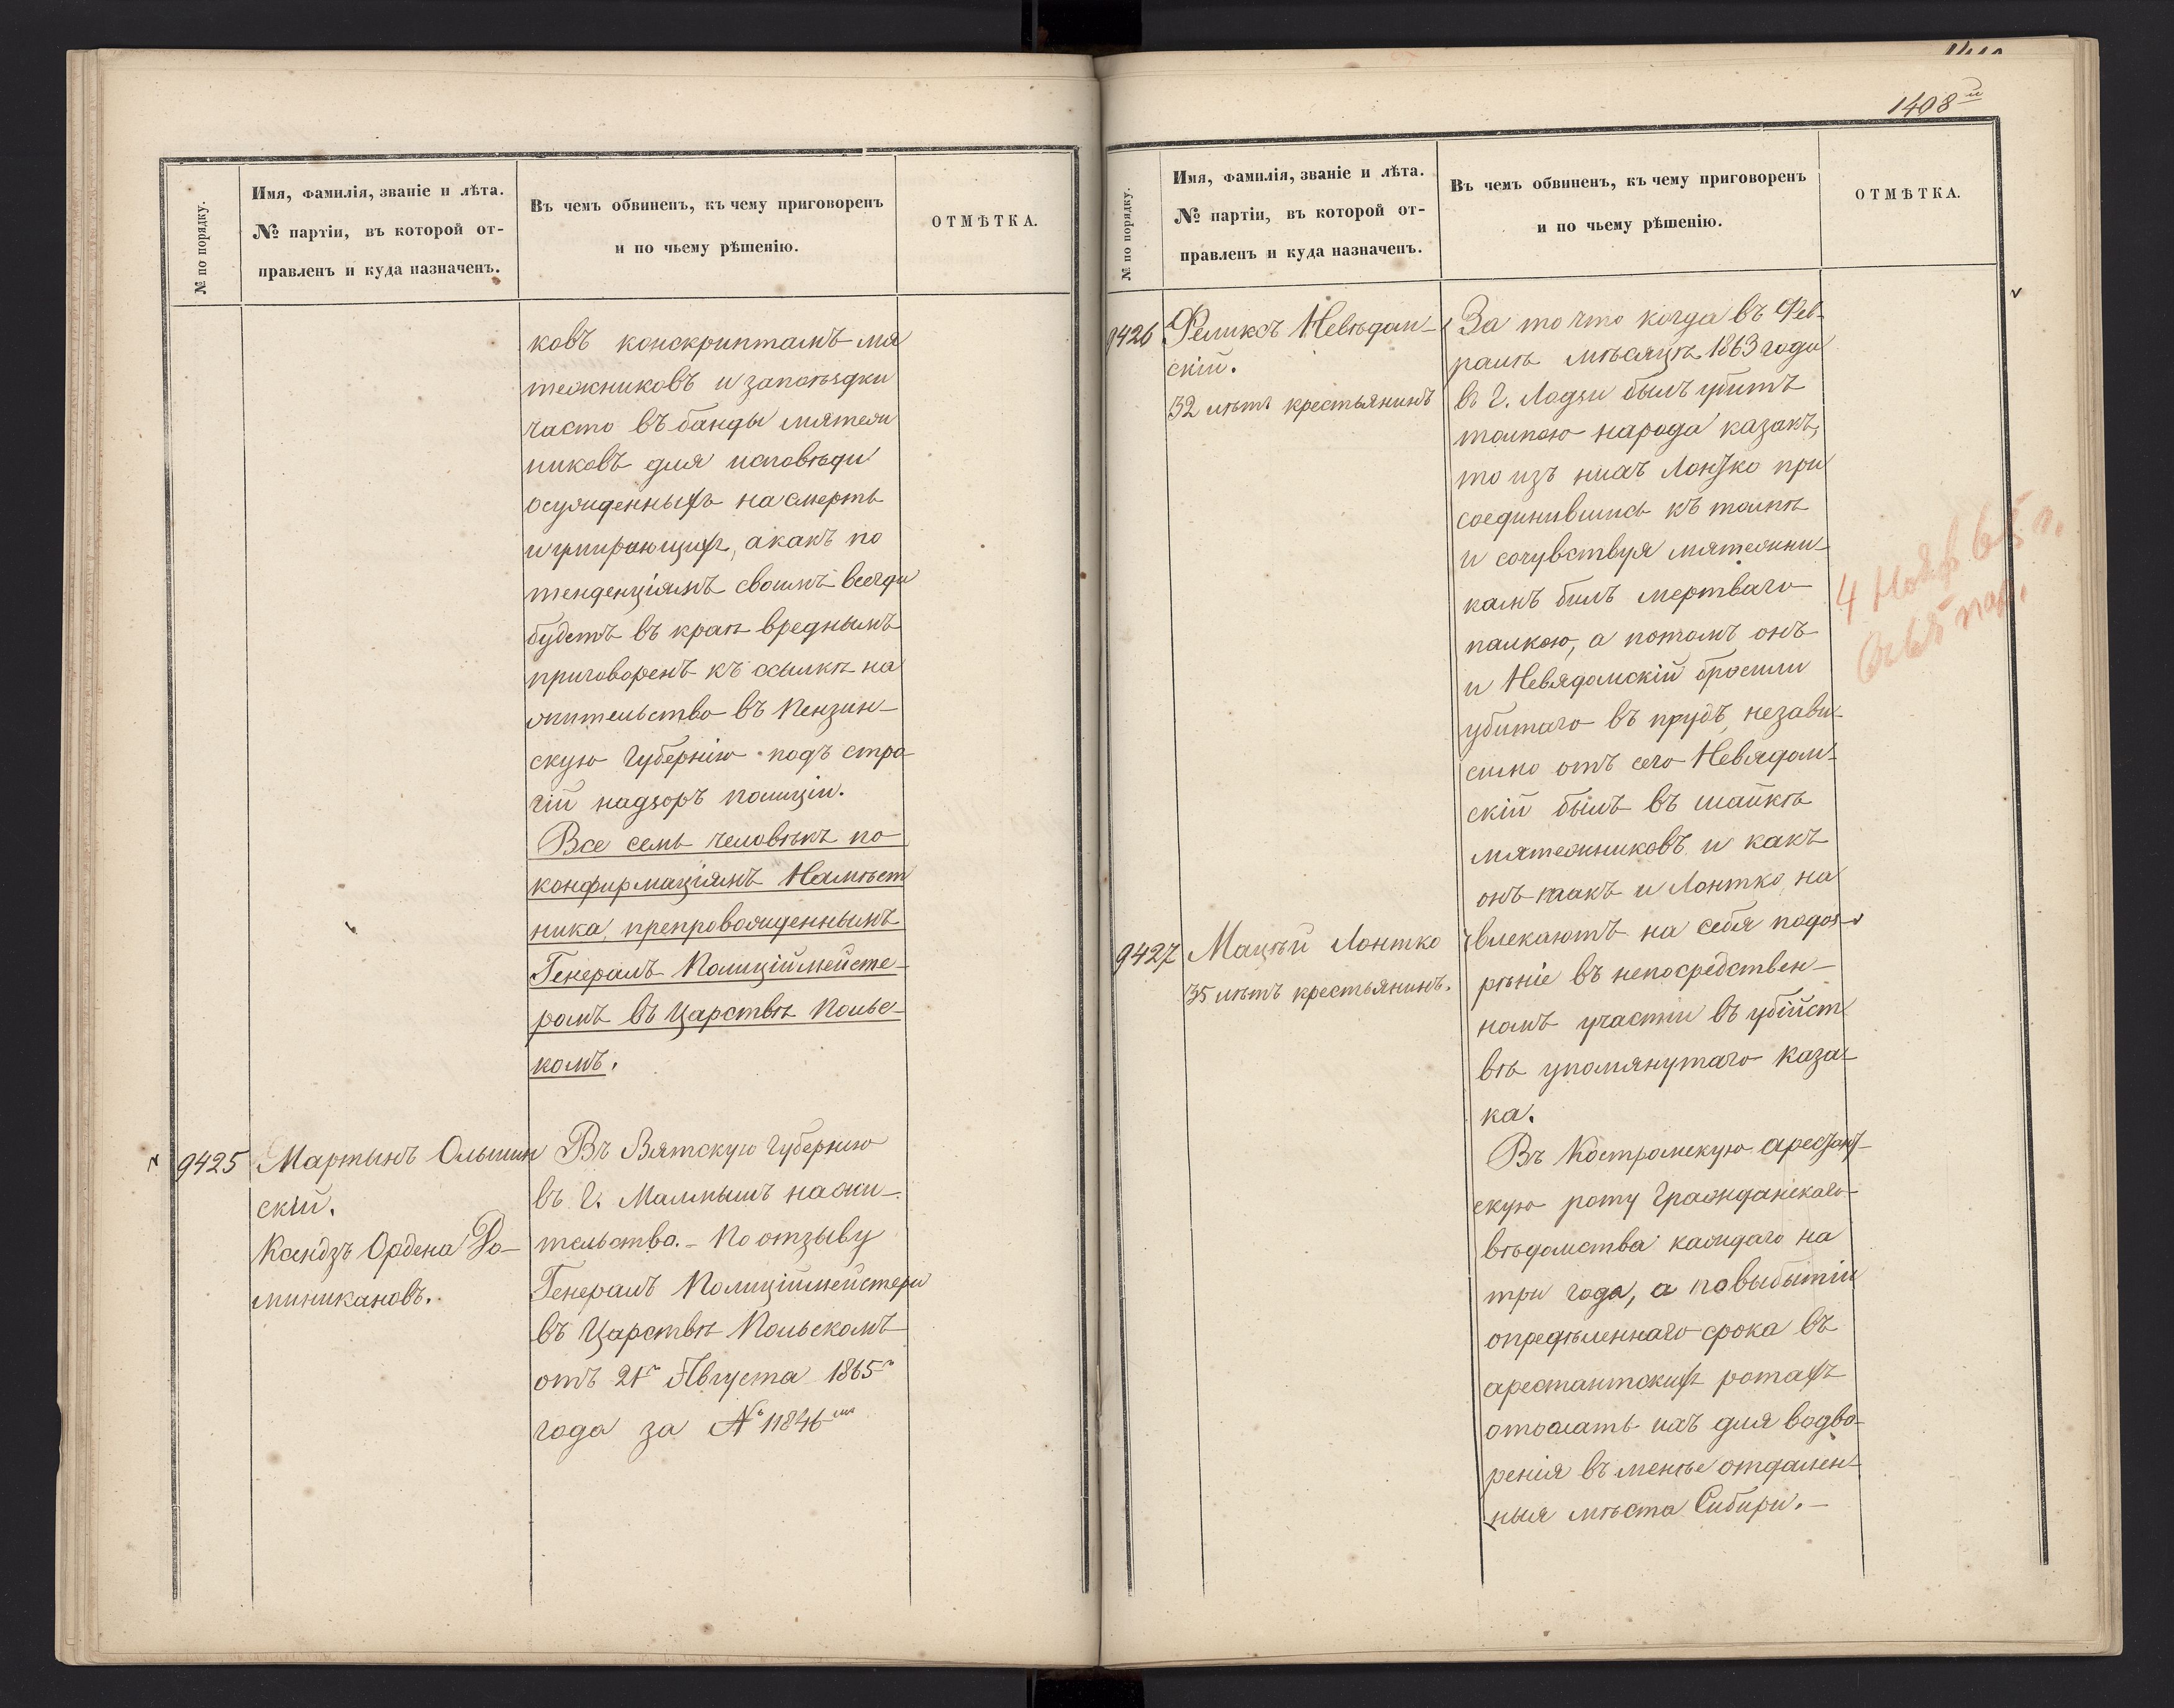 № по порядку.
Имя, фамилія, званіе и лѣта.
№ партіи, въ которой от-
правленъ и куда назначенъ.
Въ чемъ обвиненъ, къ чему приговоренъ
и по чьему рѣшенію.
ОТМѢТКА.
ковъ конскриптамъ мя
тежниковъ и
часто въ банды мятеж
никовъ для исповѣди
осужденныхъ на смерть
и умирающихъ, а какъ по
тенденціямъ своимъ всегда
будетъ въ краѣ вреднымъ
приговоренъ къ ссылкѣ на
жительство въ Пензин-
скую Губернію подъ стро-
гій надзоръ полиціи.
Все семь человѣкъ по
конфирмаціямъ Намѣст
ника, препровожденнымъ
Генералъ Полиціймейсте-
ромъ въ Царствѣ Польс-
комъ.
9425
Мартынъ Ольшин
скій.
Ксендзъ Ордена До-
миникановъ.
Въ Вятскую Губернію
въ г. Малмышъ на жи-
тельство. - По отзыву
Генералъ Полиціймейстера
въ Царствѣ Польскомъ
отъ 21го Августа 1865го
года за № 11846мъ
1408й
№ по порядку.
Имя, фамилія, званіе и лѣта.
№ партіи, въ которой от-
правленъ и куда назначенъ.
Въ чемъ обвиненъ, къ чему приговоренъ
и по чьему рѣшенію.
ОТМѢТКА.
9426
Феликсъ Невѣдом-
скій.
32 лѣтъ крестьянинъ
За то что когда въ Фев-
ралѣ мѣсяцѣ 1863 года
въ г. Лодзи былъ убитъ
толпою народа казакъ,
то изъ нихъ Лонтко при
соединившись къ толпѣ
и сочувствуя мятежни-
камъ билъ мертваго
палкою, а потомъ онъ
и Невядомскій бросили
убитаго въ прудъ, незави-
симо отъ сего Невядом-
скій былъ въ шайкѣ
мятежниковъ и какъ
онъ такъ и Лонтко, на
влекаютъ на себя подоз-
рѣніе въ непосредствен-
номъ участіи въ убійст
вѣ упомянутаго каза-
ка.
9427
Мацѣй Лонтко
35 лѣтъ крестьянинъ.
Въ Костромскую арестант-
скую роту Гражданскаго
вѣдомства каждаго на
три года, а по выбытіи
опредѣленнаго срока въ
арестантскихъ ротахъ
отослать ихъ для водво-
ренія въ менѣе отдален-
ныя мѣста Сибири. -
4 Нояб 65 г.